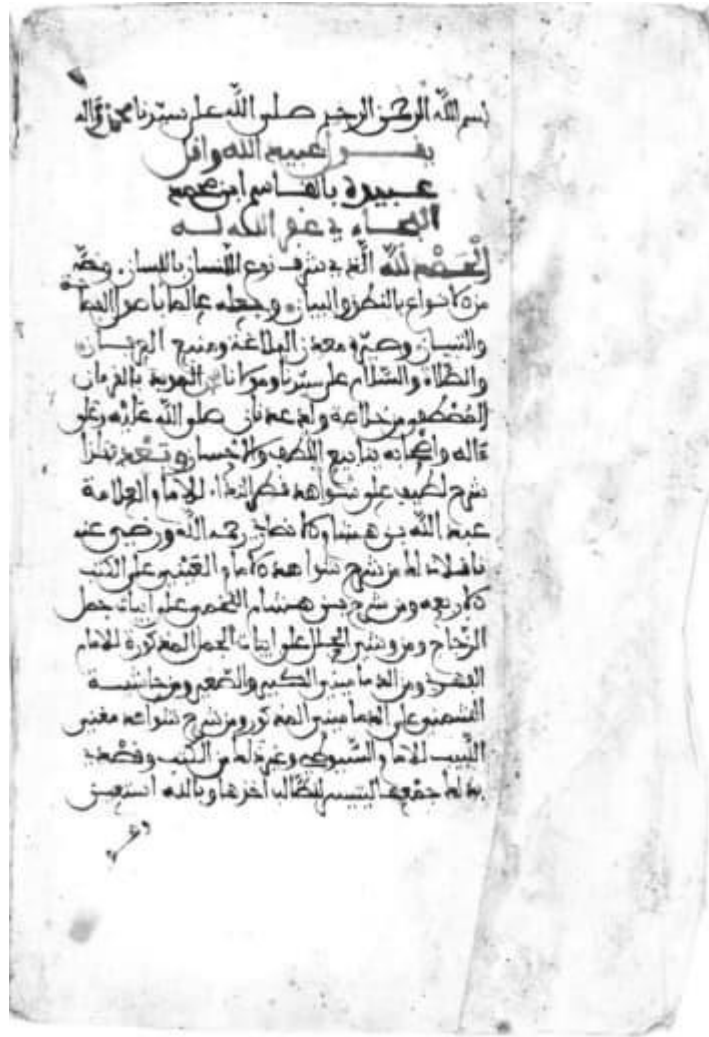 بسم الله الرحمن الرحيم صلى الله على سيدنا محمد وآله
يقول عبيد الله وأقل
عبيده بالقاسم ابن محمد
البجاءي غفر الله له
الحمد لله الذي شرف نوع الانسان باللسان وخصه
من الانواع بالنطق والبيان وجعله عالما بأصول الفصاحة
والتبيان وصيره معدن البلاغة ومنبع
والصلاة والسلام على سيدنا ومولانا المؤيد بالقرءان
المصطفى من خلاصة ولد عدنان صلى الله عليه وعلى
ءاله وأصحابه ينابيع اللطف والاحسان وبعد فهذا
شرح لطيف على شواهد قطر الندا للامام العلامة
عبد الله بن هشام الانصاري رحمه الله ورضي عنه
ناقلا ذلك من شرح شواهد الامام العيني على الكتب
الاربعة ومن شرح بن هشام اللخمي على ابيات جمل
الزجاج ومن وشي الحلل على ابيات الجمل المذكورة للامام
الفهري ومن الدماميني الكبير والصغير ومن حاشية
الشمني على الدماميني المذكور ومن شرح شواهد مغني
اللبيب للامام السيوطي وغير ذلك من الكتب وقصدي
بذلك جمعها ليتيسر للطالب أخذها وبالله أستعين